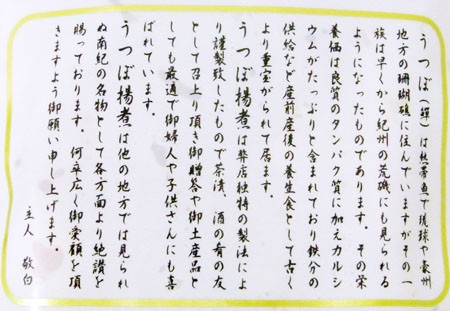 うつぼ(鱓)は熱帯魚で琉球や豪州
地方の珊瑚礁に住んでいますがその一
族は早くから紀州の荒磯にも見られる
ようになったものであります。その栄
養価は良質のタンパク質に加えカルシ
ウムがたっぷりと含まれており鉄分の
供給など産前産後の養生食として古く
より重宝がられて居ます。
うつぼ揚煮は弊店独特の製法によ
り謹製致したもので茶漬、酒の肴の友
として召上り頂き御贈答や御土産品と
しても最適で御婦人や子供さんにも喜
ばれています。
うつぼ揚煮は他の地方では見られ
ぬ南紀の名物として各方面より絶讃を
賜っております。何卒広く御愛顧を頂
きますよう御願い申し上げます。
主人 敬白